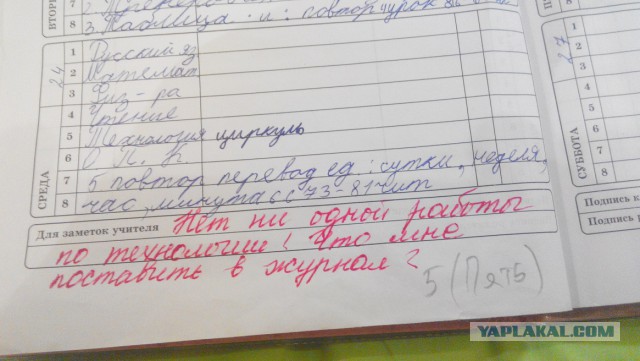 ВТОРН
8 3. Таблица и: повтор урок
СРЕДА
24
1 Русский яз
2 Математ
3 Физ-ра
4 Чтение
5 Технология циркуль
6
7 5 повтор перевод ед: сутки, неделя,
8 час, минута с 73-81 чит
Для заметок учителя Нет ни одной работы
по технологии! Что мне
поставить в журнал?
5 (Пять)
СУББОТА
27
1
2
3
4
5
6
7
8
Подпись
Подпись
YAPLAKAL.COM